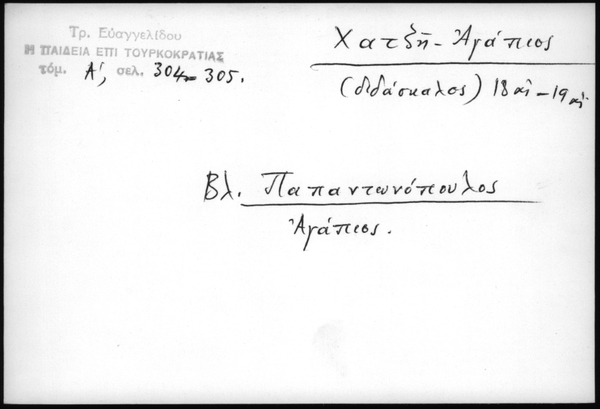 Τρ. Εὐαγγελίδου
Η ΠΑΙΔΕΙΑ ΕΠΙ ΤΟΥΡΚΟΚΡΑΤΙΑΣ
τόμ. Α', σελ. 304-305.
Χατζῆ-Ἀγάπιος
(διδάσκαλος) 18 αἰ - 19 αἰ
Βλ. Παπαντωνόπουλος
Ἀγάπιος.